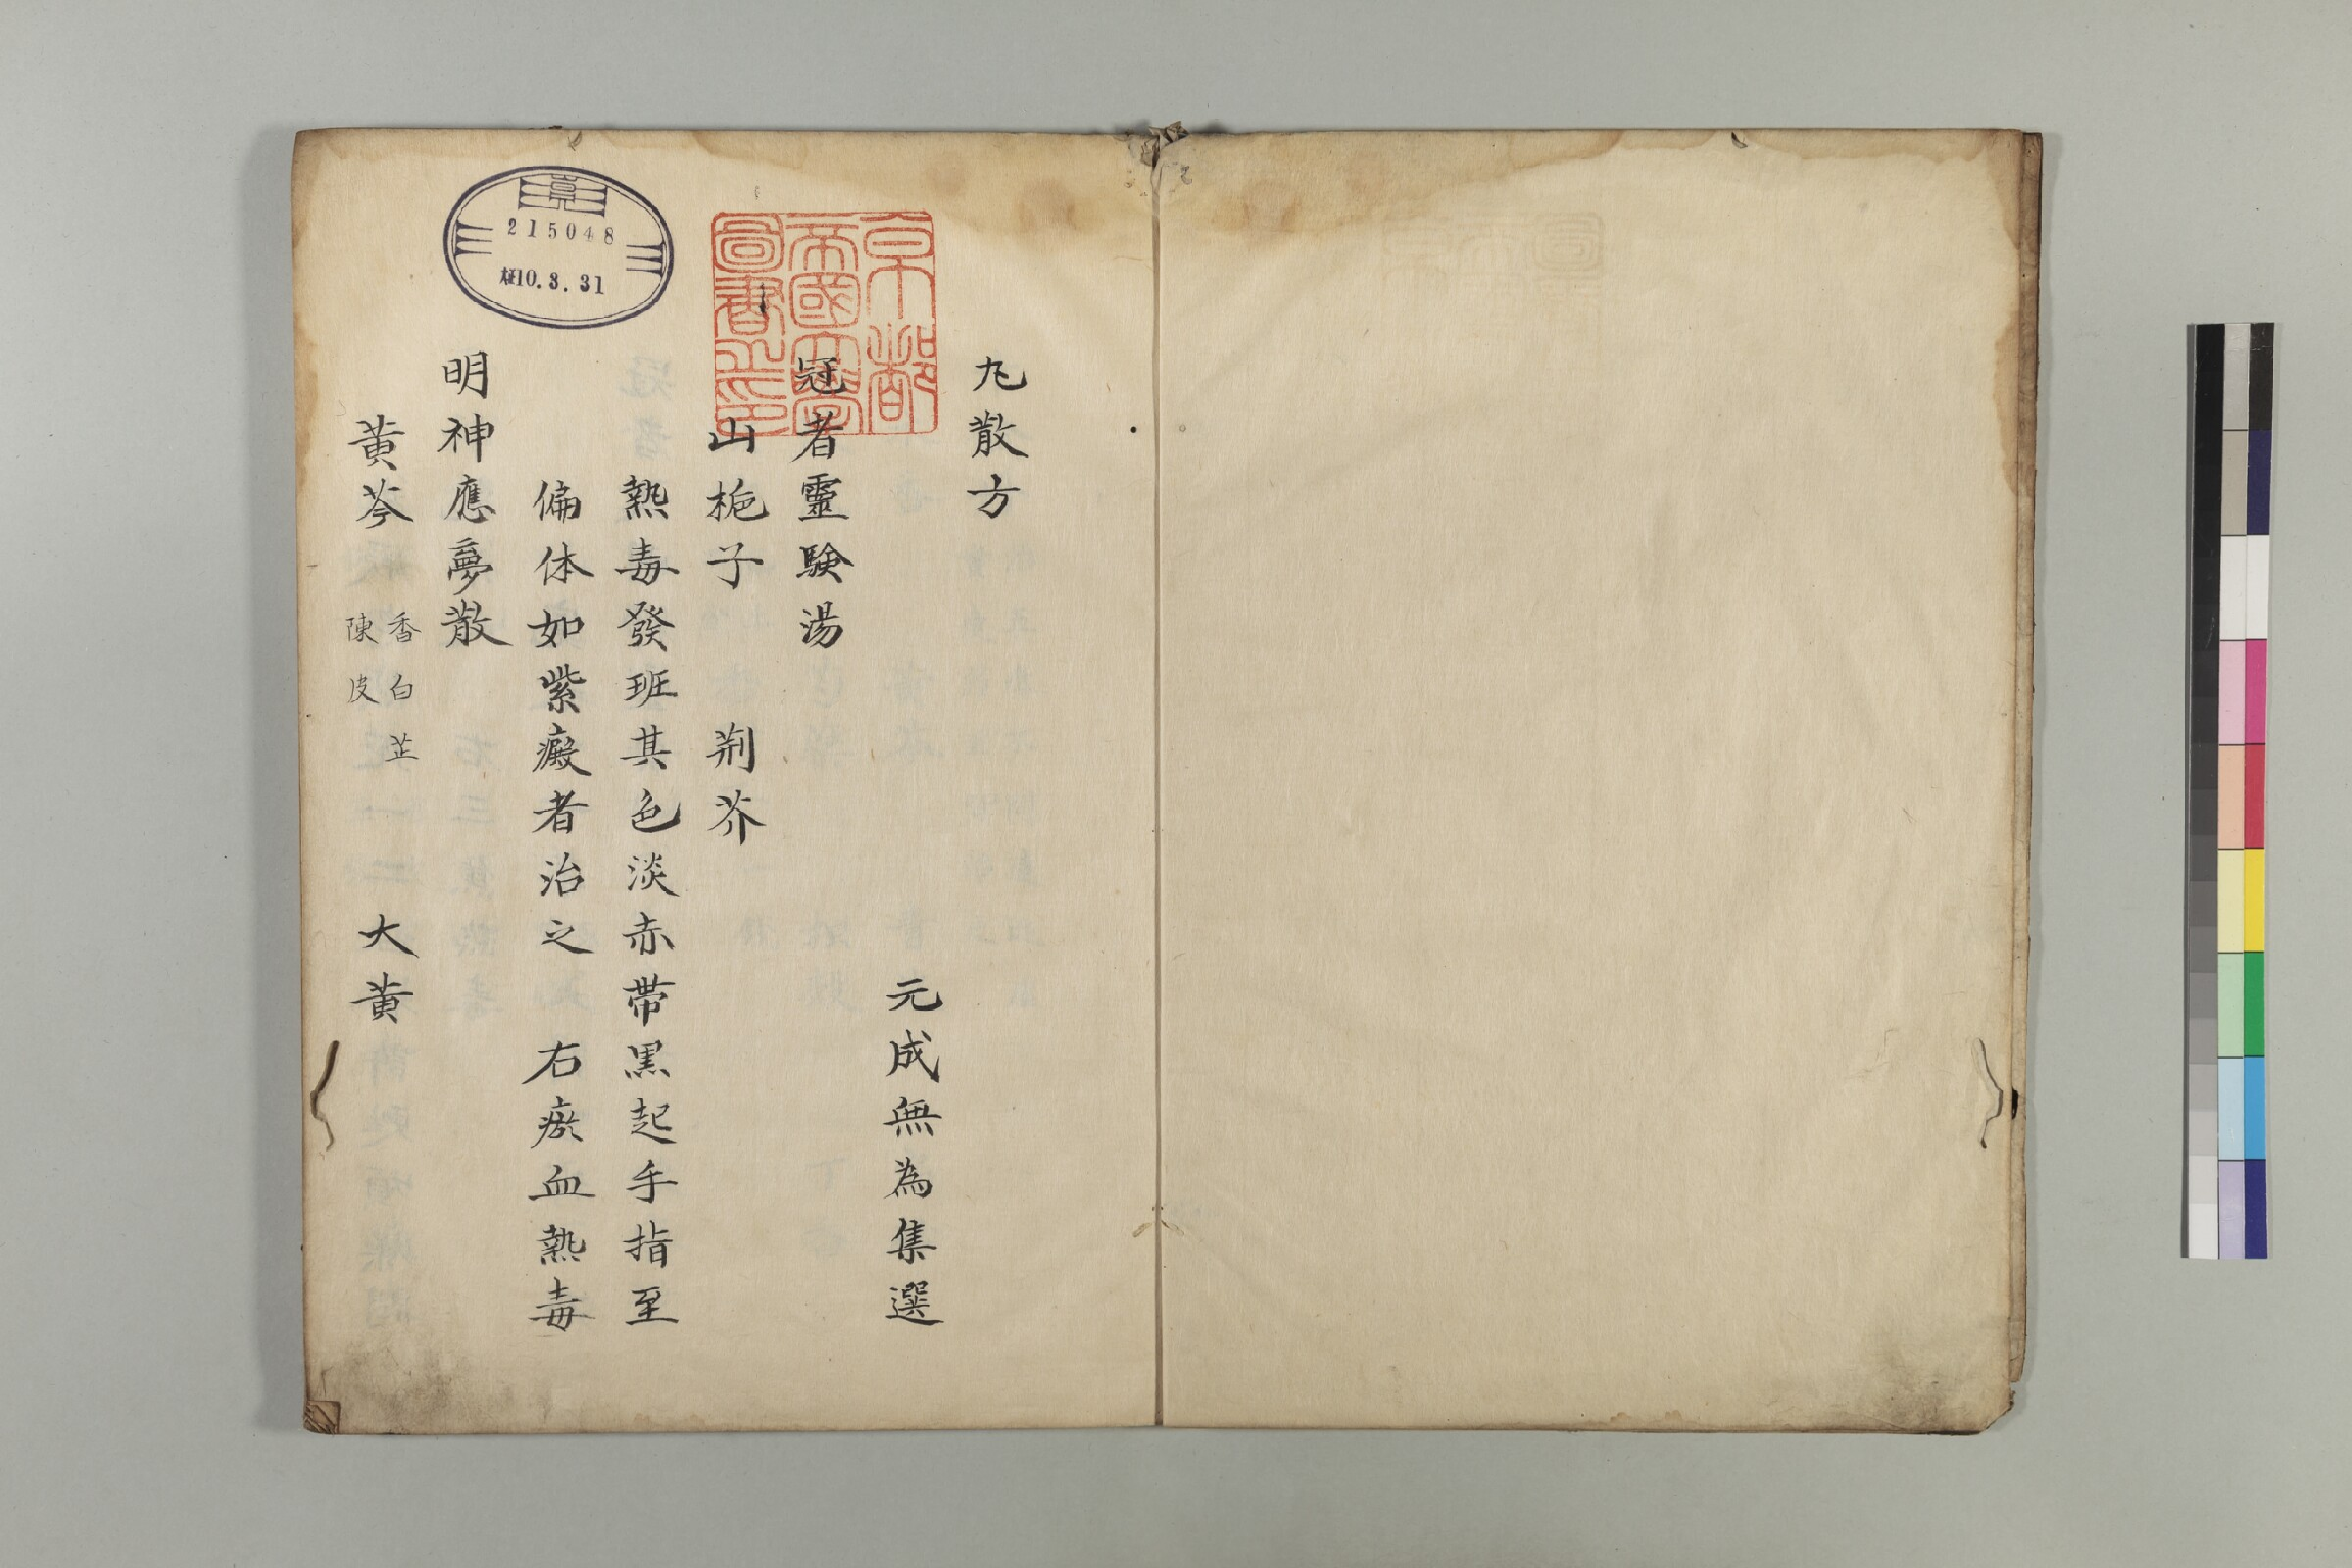 丸散方
元成無為集選
冠者靈験湯
山梔子　荆芥
熱毒發班其色淡赤帶黒起手指至
偏体如紫癜者治之　右瘀血熱毒
明神應夢散
黄芩　香白芷　陳皮　大黄
京都
帝國大學
圖書之印
215048
10.3.31